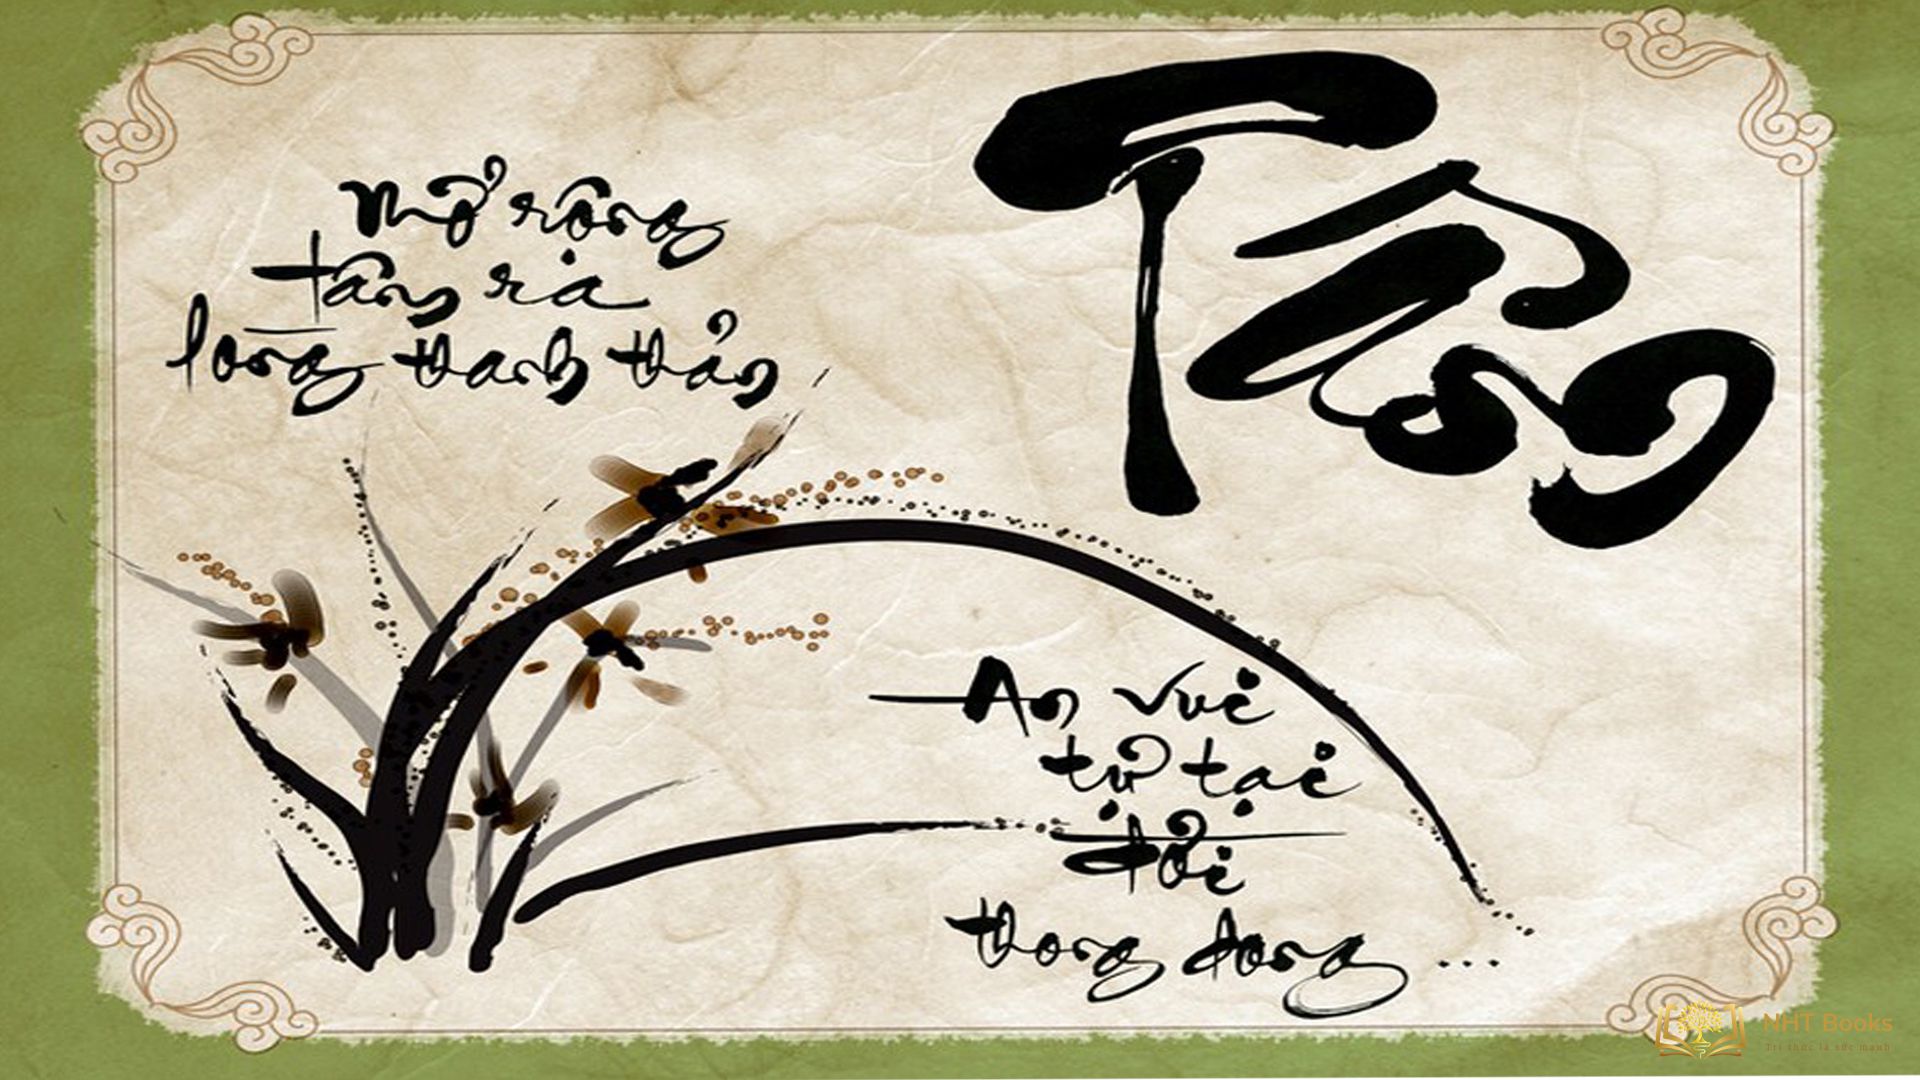 Tâm
mở rộng
tâm ra
lòng thanh thản
An vui
tự tại
đời
thong dong ...
NHT Books
Tri thức là sức mạnh